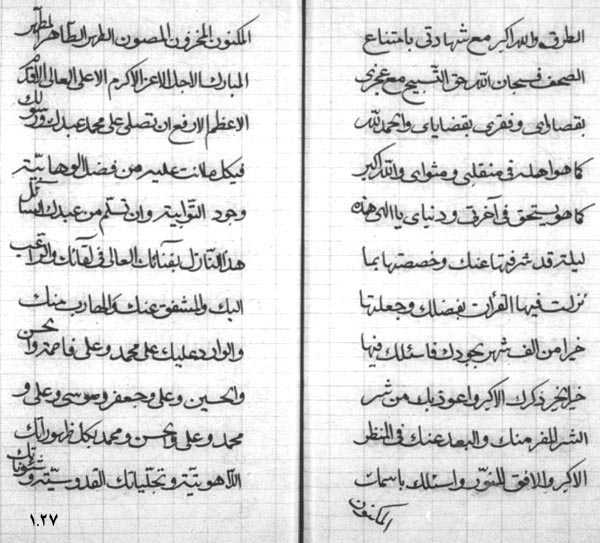 الطرق والله اكبر مع شهادتي بامتناع
الصحف فسبحان الله حق التسبيح مع عجزي
بقضاياي وفقري بقضاياي والحمد لله
كما هو اهله في منقلبي ومثواي والله اكبر
كما هو يستحق في آخرتي ودنياي يا الهي هذه
ليلة قد شرفتها عنك وخصصتها بما
نزلت فيها القرآن بفضلك وجعلتها
خيرا من الف شهر بجودك فاسئلك فيها
خير الخير ذكرك الاكبر واعوذ بك من شر
الشر المفر منك والبعد عنك في المنظر
الاكبر والافق المنور واسئلك باسمك
المكنون
المكنون المخزون المصون الطهر الطاهر المطهر
المبارك الاجل الاعز الاكرم الاعلى العالي
الاعظم الارفع ان تصلي على محمد عبدك ورسولك
فيكل ما انت عليه من فضل الوهابية
وجود التوابية وان تسلم من عبدك السائل
هذا النازل بفنائك العالي في لقائك والراغب
اليك والمشفق عنك والهارب منك
والوارد عليك على محمد وعلي فاطمة والحسن
والحسين وعلي وجعفر وموسى وعلي و
محمد وعلي والحسن ومحمد بكل ظهوراتك
اللاهوتية وتجلياتك القدوسية وشئوناتك
١٠٢٧